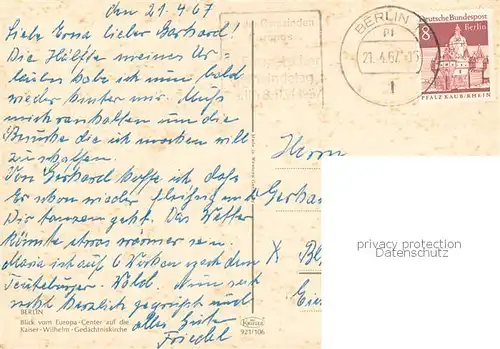 den 21.4.67
Liebe Erna lieber Gerhard!
Die Hälfte meines Ur-
laubes habe ich nun bald
wieder hinter mir. Muß
mich ranhalten um die
Besuche die ich machen will
zu schaffen.
Von Gerhard hoffe ich daß
Er schon wieder fleißig mit
Dir tanzen geht. Das Wetter
könnte etwas wärmer sein.
Maria ist auf 6 Wochen nach dem
Teuteburger-Wald. Nun seid
recht herzlich gegrüßt und
alles Gute
Friedel
BERLIN
Blick vom Europa-Center auf die
Kaiser-Wilhelm-Gedächtniskirche
Krüger
921/106
BERLIN
21.4.67
1
Deutsche Bundespost
8 Berlin
PFALZ KAUB/RHEIN
Herrn
Gerha
X
privacy protection
Datenschutz